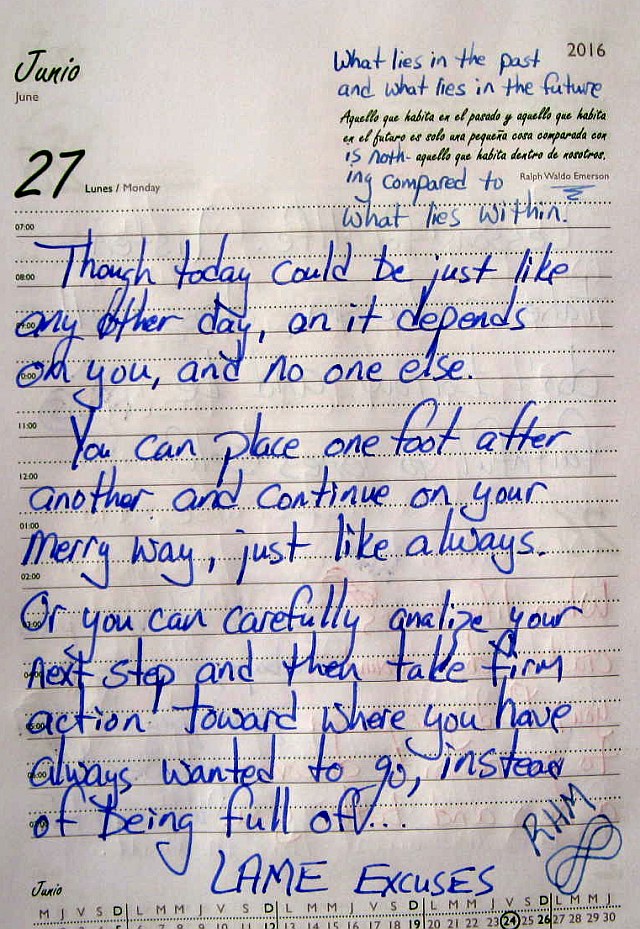 Junio
June
2016
What lies in the past
and what lies in the future
Aquello que habita en el pasado y aquello que habita
en el futuro es solo una pequeña cosa comparada con
is noth- aquello que habita dentro de nosotros.
ing compared to Ralph Waldo Emerson
what lies within.
27 Lunes / Monday
07:00
Though today could be just like
08:00
any other day, on it depends
on you, and no one else.
11:00
You can place one foot after
12:00
another and continue on your
01:00
Merry way, just like always.
02:00
Or you can carefully analize your
next step and then take firm
action toward where you have
always wanted to go, instead
of being full of...
RHM
LAME EXCUSES
Junio
M J V S D L M M J V S D L M M J V S D L M M J V S D L M M J
12 13 14 15 16 17 18 19 20 21 22 23 24 25 26 27 28 29 30